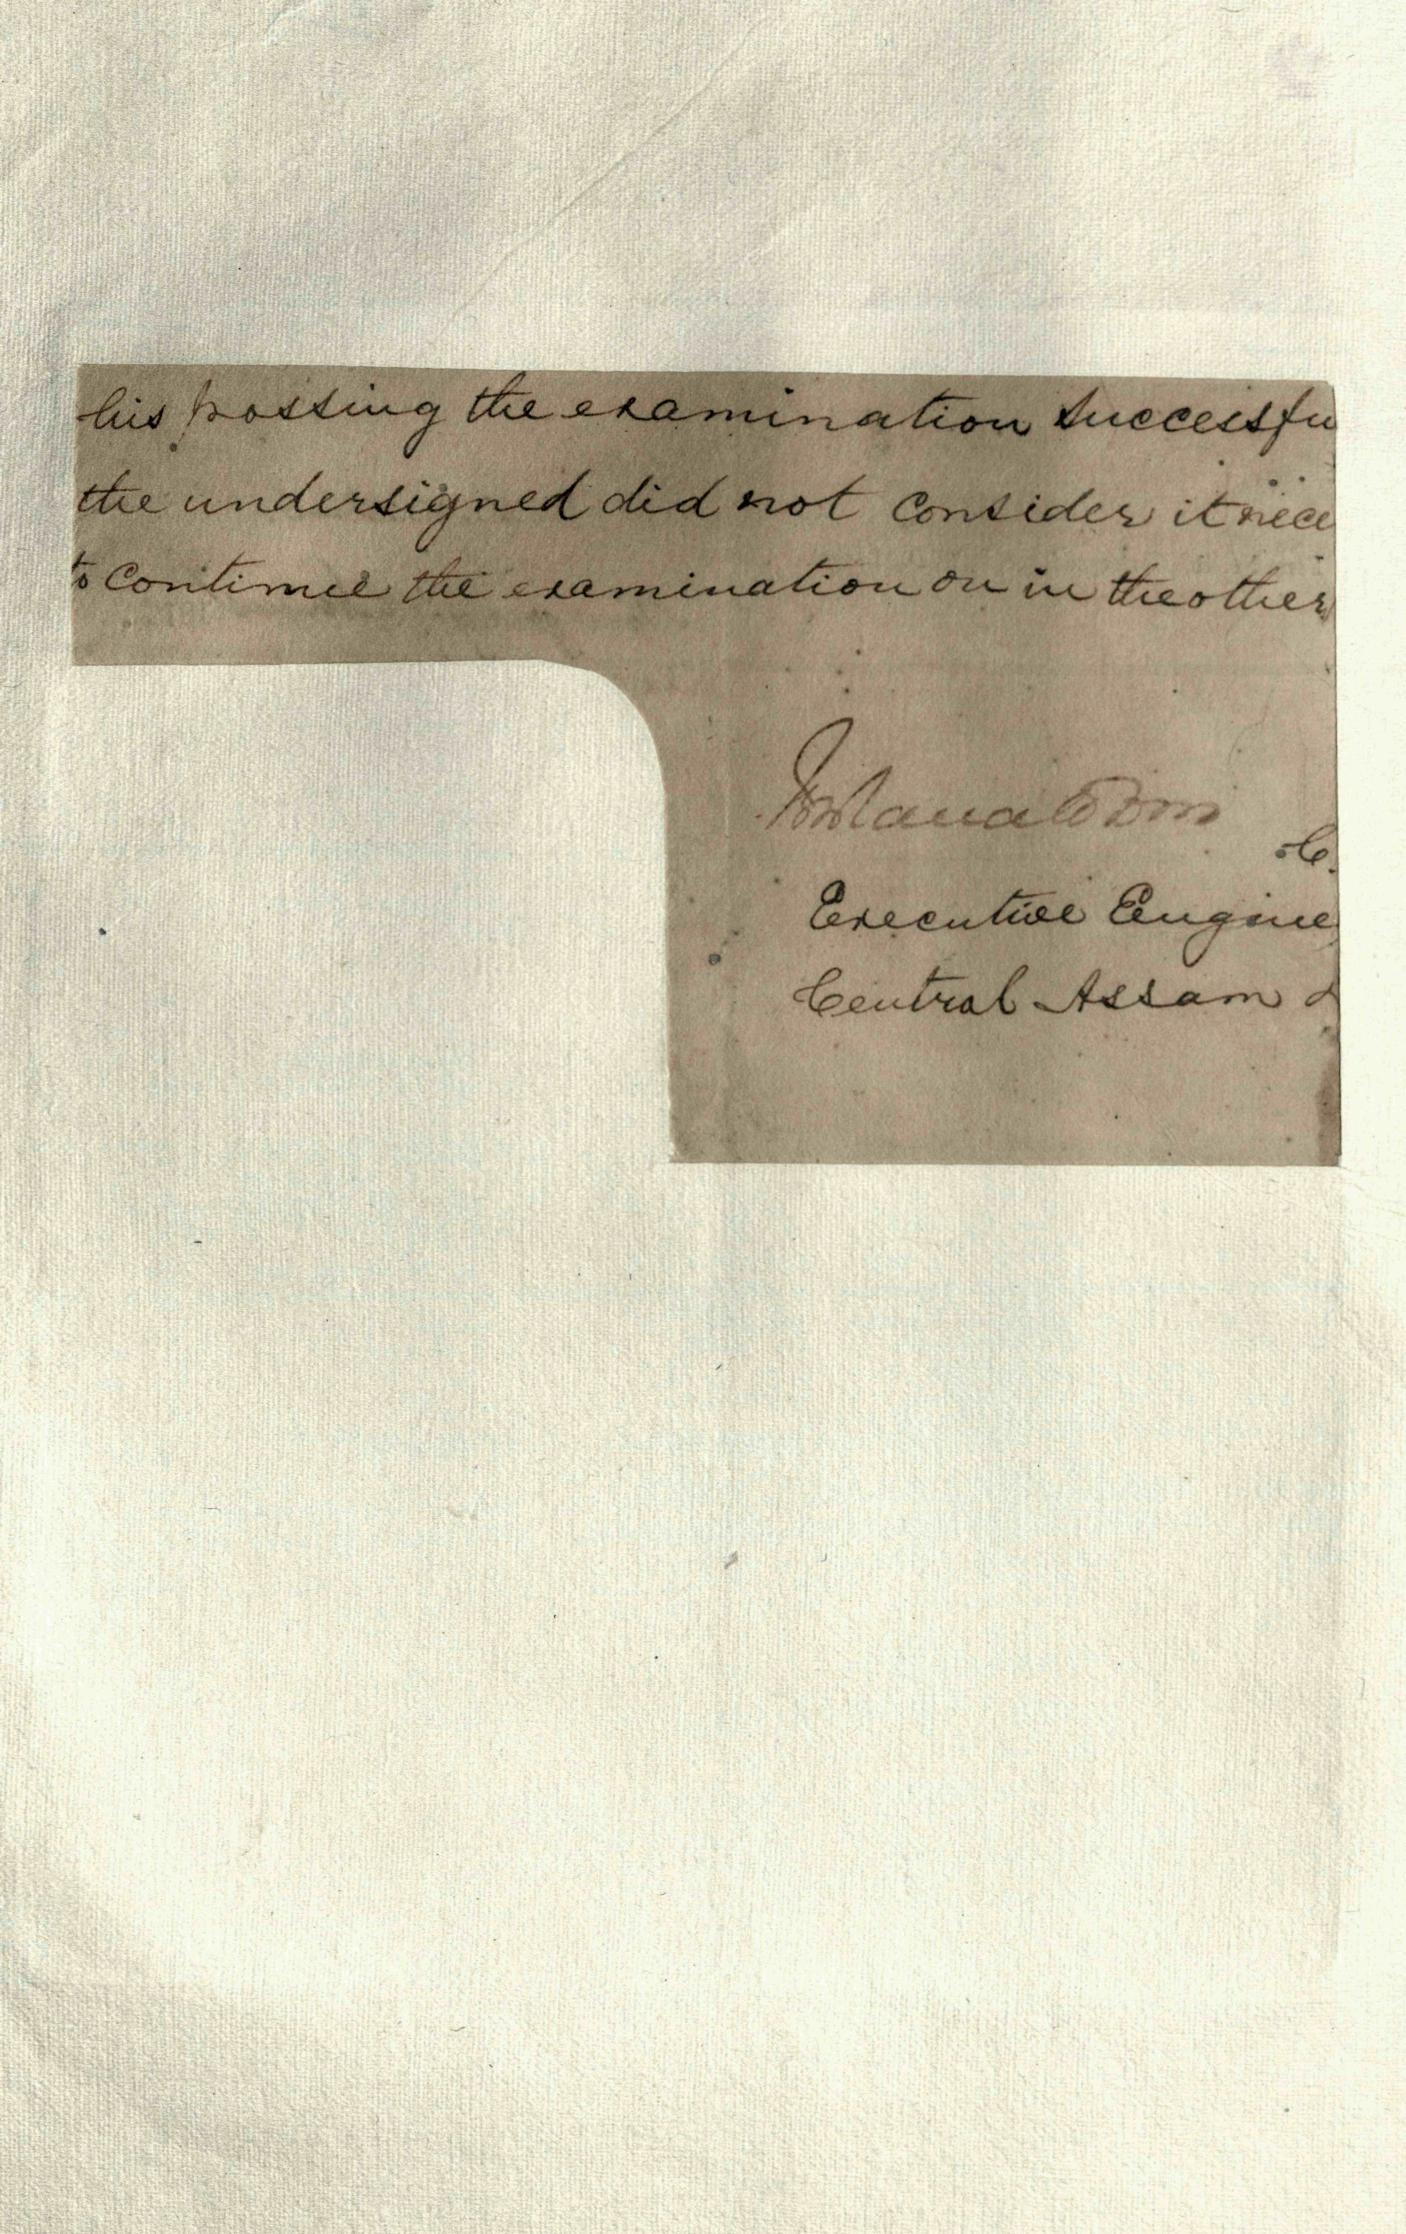 his passing the examination successfu
the undersigned did not consider it nece
to continue the examination on in the other
C.
Executive Engine
Central Assam D